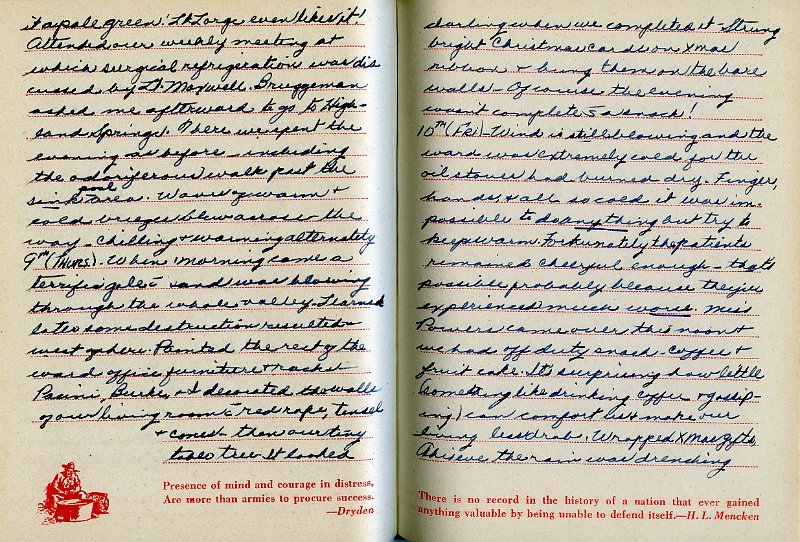 it a pale green! Lt. Lorge even likes it!
Attended our weekly meeting at
which surgical refrigeration was dis
cussed by Lt. Maxwell. Bruggeman
asked me afterward to go to High-
land Springs. There we spent the
evening as before - including
the odoriferous walk past the
sink area. Waves of warm +
cold breezes blew across the
way - chilling + warming alternately
9TH (THURS). When morning came a
terrific gale + sand was blowing
through the whole valley. Learned
later some destruction resulted
west of here. Painted the rest of the
ward office furniture +
Pasini, Burke, + I decorated the walls
of our living room red rope, tinsel
+ cones. Then our tiny
table tree. It looked
Presence of mind and courage in distress,
Are more than armies to procure success.
—Dryden
darling when we completed it - Strung
bright Christmas cards on Xmas
ribbon + hung them on the bare
walls - Of course the evening
wasn't complete s̄ a snack!
10TH (Fri) - Wind is still blowing and the
ward was extremely cold for the
oil stoves had burned dry. Finger,
hands + all so cold it was im-
possible to do anything but try to
keep warm. Fortunately the patients
remained cheerful enough - that's
possible probably because they've
experienced much worse. Miss
Powers came over this noon +
we had off duty snack - coffee +
fruit cake. It's surprising how little
(something like drinking coffee + gossip-
ing) can comfort us + make our
living less drab. Wrapped Xmas gifts
Believe the rain was drenching
There is no record in the history of a nation that ever gained
anything valuable by being unable to defend itself.—H. L. Mencken